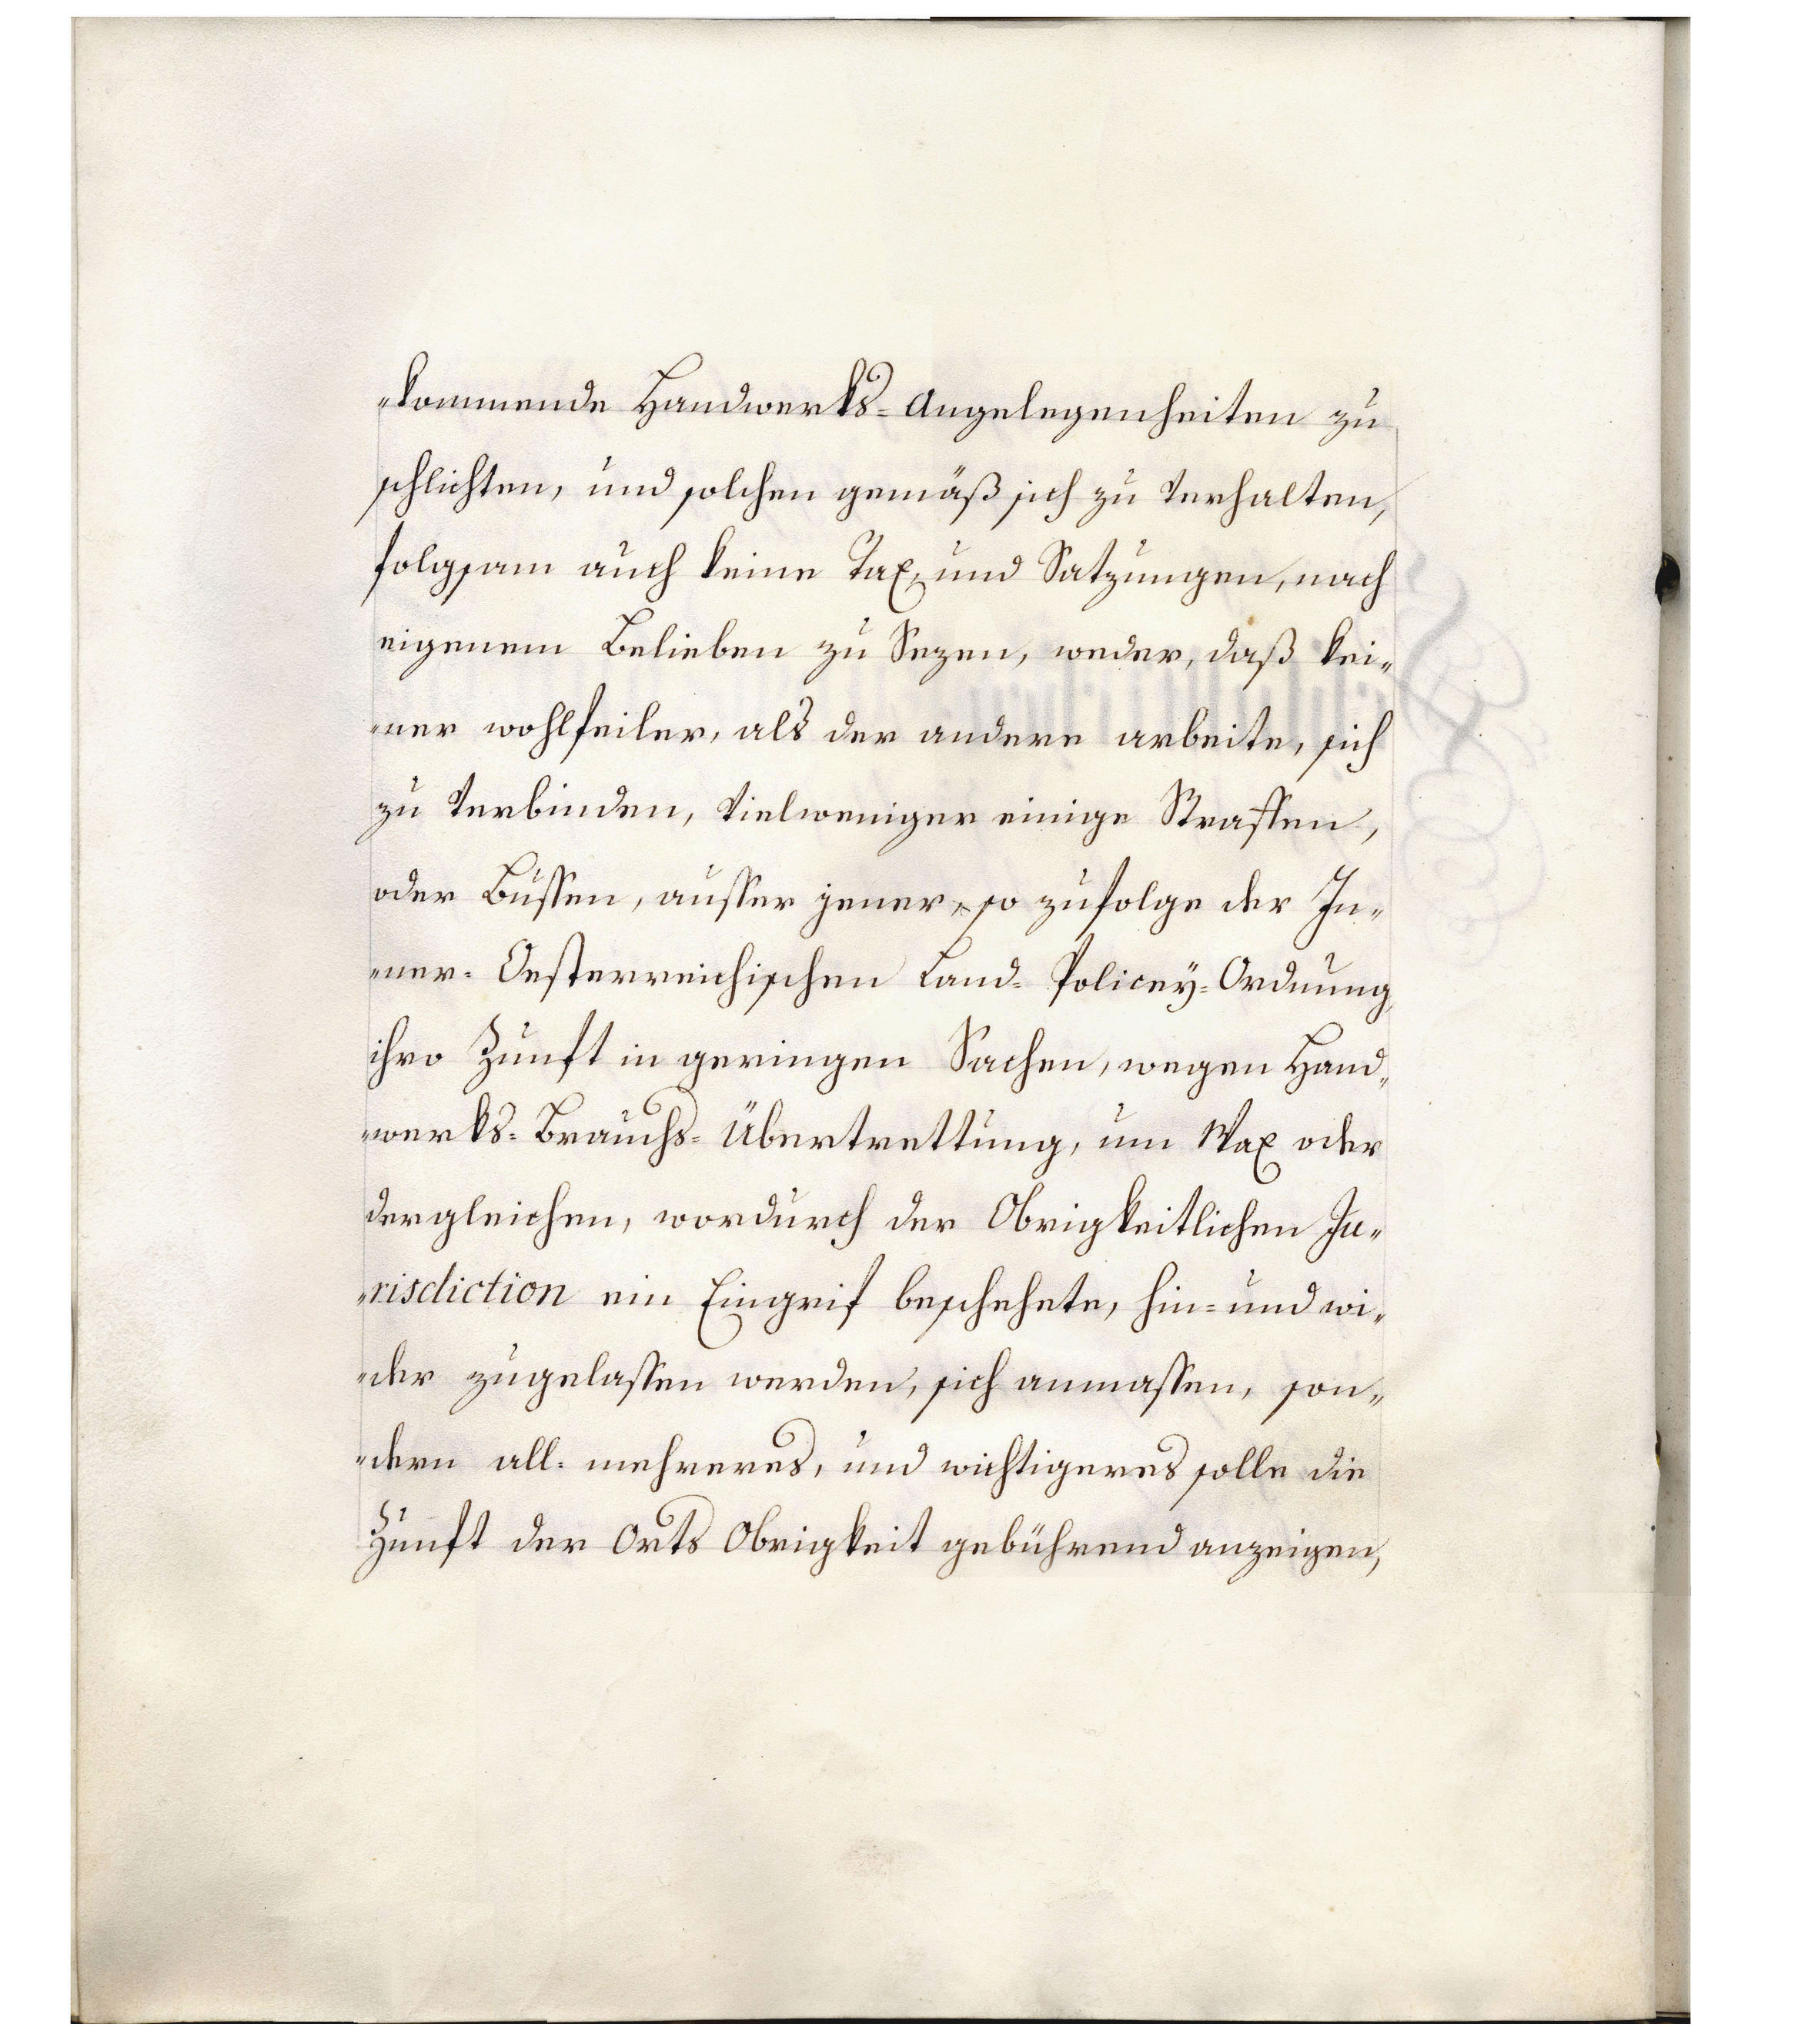 „kommende Handwerks-Angelegenheiten zu
schlichten, und solchen gemäß sich zu verhalten,
folgsam auch keine Tax, und Satzungen, nach
eigenem Belieben zu Sezen, weder, daß kei„
„ner wohlfeiler, als der andere arbeite, sich
zu verbinden, vielweniger einige Straffen,
oder Bussen, ausser jener, so zufolge der In„
„ner-Oesterreichischen Land-Policeÿ-Ordnung,
ihro Zunft in geringen Sachen, wegen Hand„
„werks-Brauchs-Übertrettung, um Wax oder
dergleichen, wordurch der Obrigkeitlichen Ju„
„risdiction ein Eingrif beschehete, hin- und wi„
„der zugelassen werden, sich anmassen, son„
„dern all-mehreres, und wichtigeres solle die
Zunft der Orts Obrigkeit gebührend anzeigen,